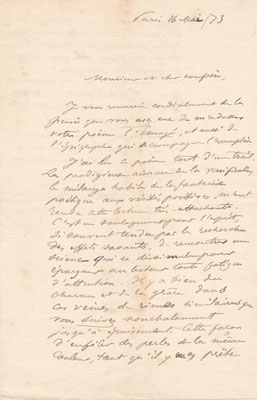 Paris 16 Mai /73
Monsieur et cher confrère,
Je vous remercie cordialement de la
pensée que vous avez eue de m'adresser
votre poème l'Imagé, et aussi de
l'épigraphe qui accompagne l'exemplaire
J'ai lu le poème tout d'un trait.
La prodigieuse aisance de la versification,
le mélange habile de la fantaisie
poétique aux vérités positives, m'ont
rendu cette lecture très attachante.
C'est un soulagement pour l'esprit
si souvent tendu par la recherche
des effets savants, de rencontrer une
science qui se dissimule pour
épargner au lecteur toute fatigue
d'attention. Il y a bien du
charme et de la grâce dans
ces veines de rimes similaires que
vous suivez nonchalamment
jusqu'à épuisement. Cette façon
d'enfiler des perles de la même
couleur, tant qu'il y